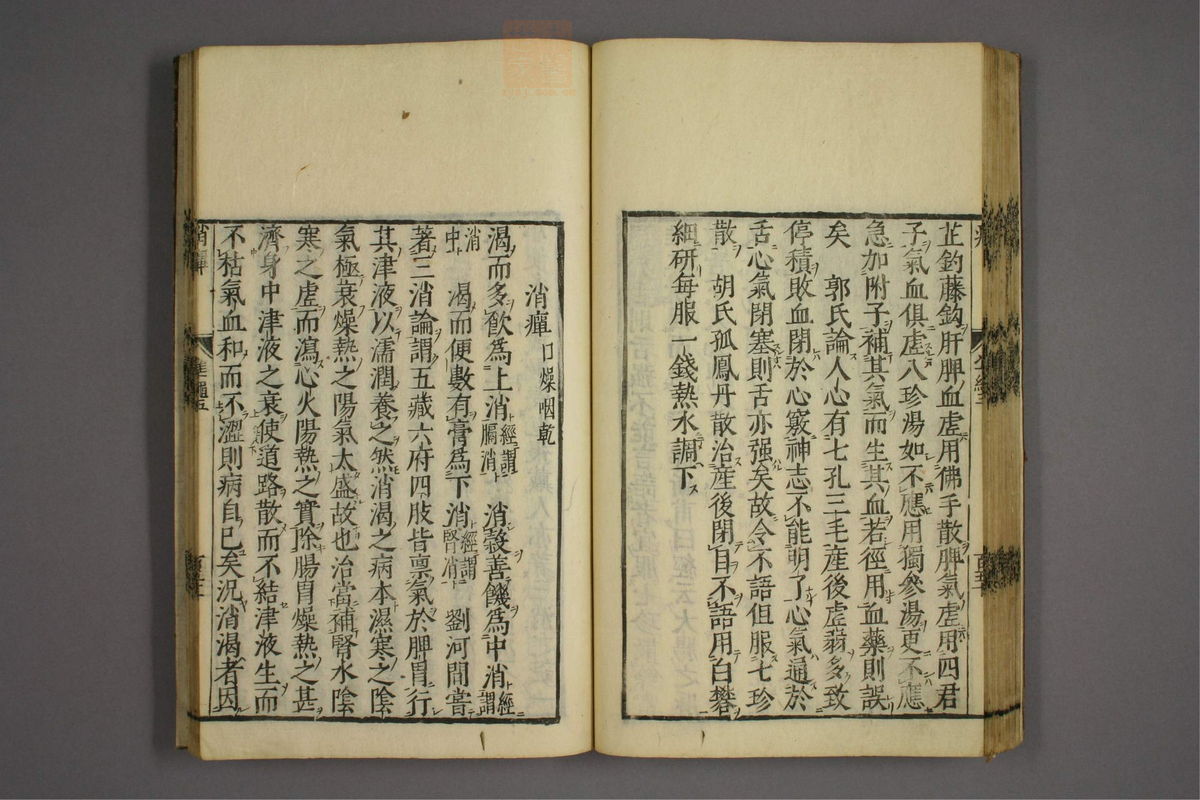 芷釣藤鈎肝脾血虛用佛手散脾氣虛用四君
子氣血俱虛八珍湯如不應用獨參湯更不應
急加附子補其氣而生其血若徑用血藥則誤
矣 郭氏論人心有七孔三毛産後虛弱多致
停積敗血閉於心竅神志不能明了心氣通於
舌心氣閉塞則舌亦强矣故令不語但服七珍
散 胡氏孤鳳丹散治産後閉目不語用白礬
細研每服一錢熱水調下
消癉口燥咽乾
渴而多飲爲上消經謂膈消 消穀善饑爲中消經謂
消中 渴而便數有膏爲下消經謂腎消 劉河間嘗
著三消論謂五藏六府四肢皆禀氣於脾胃行
其津液以濡潤養之然消渴之病本濕寒之陰
氣極衰燥熱之陽氣太盛故也治當補腎水陰
寒之虛而瀉心火陽熱之實除腸胃燥熱之甚
濟身中津液之衰使道路散而不結津液生而
不枯氣血和而不澀則病自已矣況消渴者因
消癉
準繩五